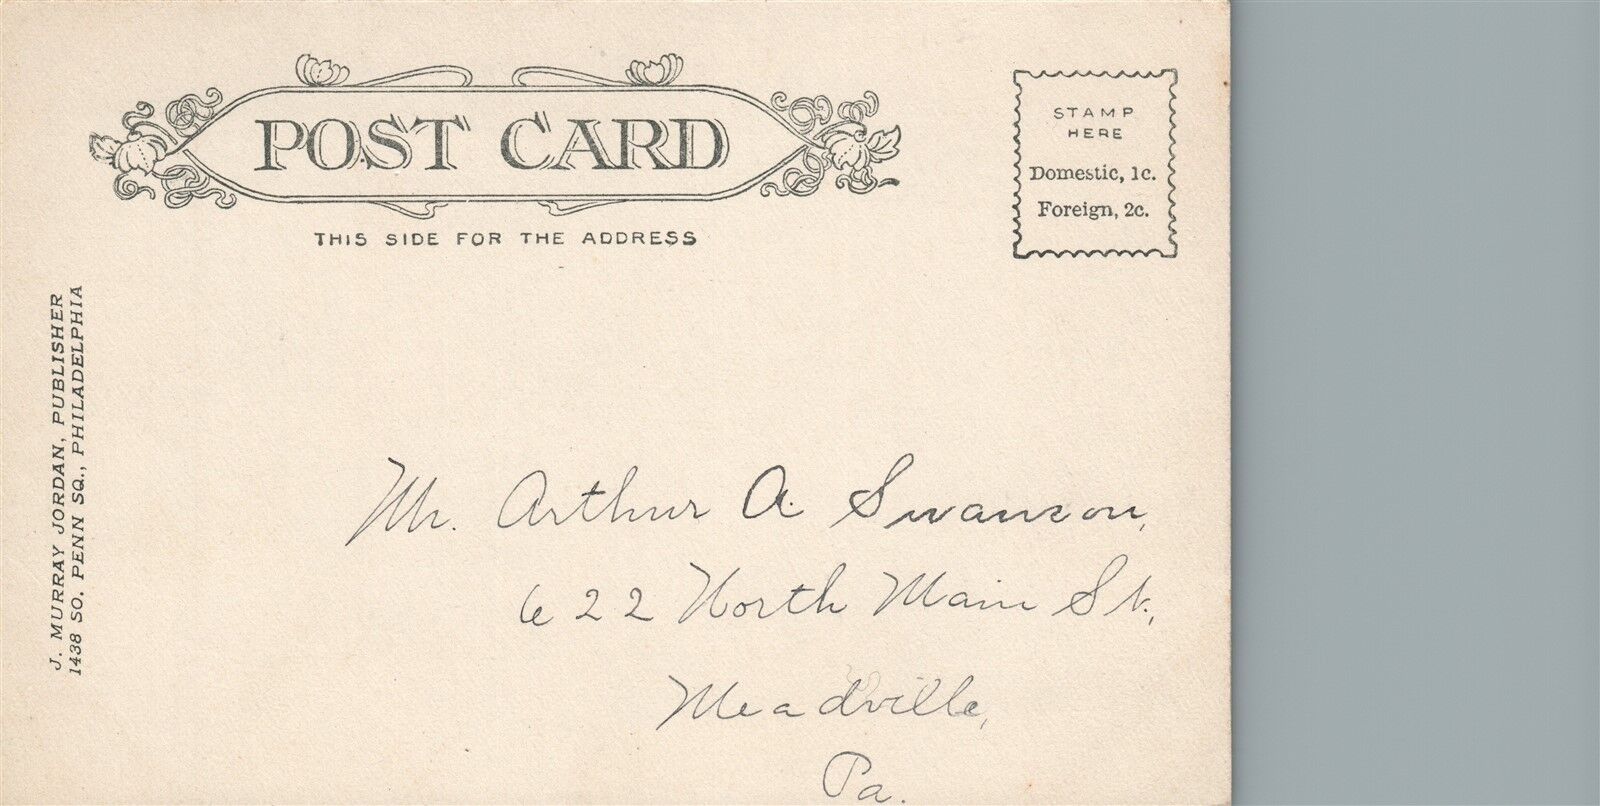 POST CARD
THIS SIDE FOR THE ADDRESS
STAMP
HERE
Domestic, 1c.
Foreign, 2c.
J. MURRAY JORDAN, PUBLISHER
1438 SO. PENN SQ., PHILADELPHIA
Mr. Arthur A. Swanson,
622 North Main St.,
Meadville,
Pa.